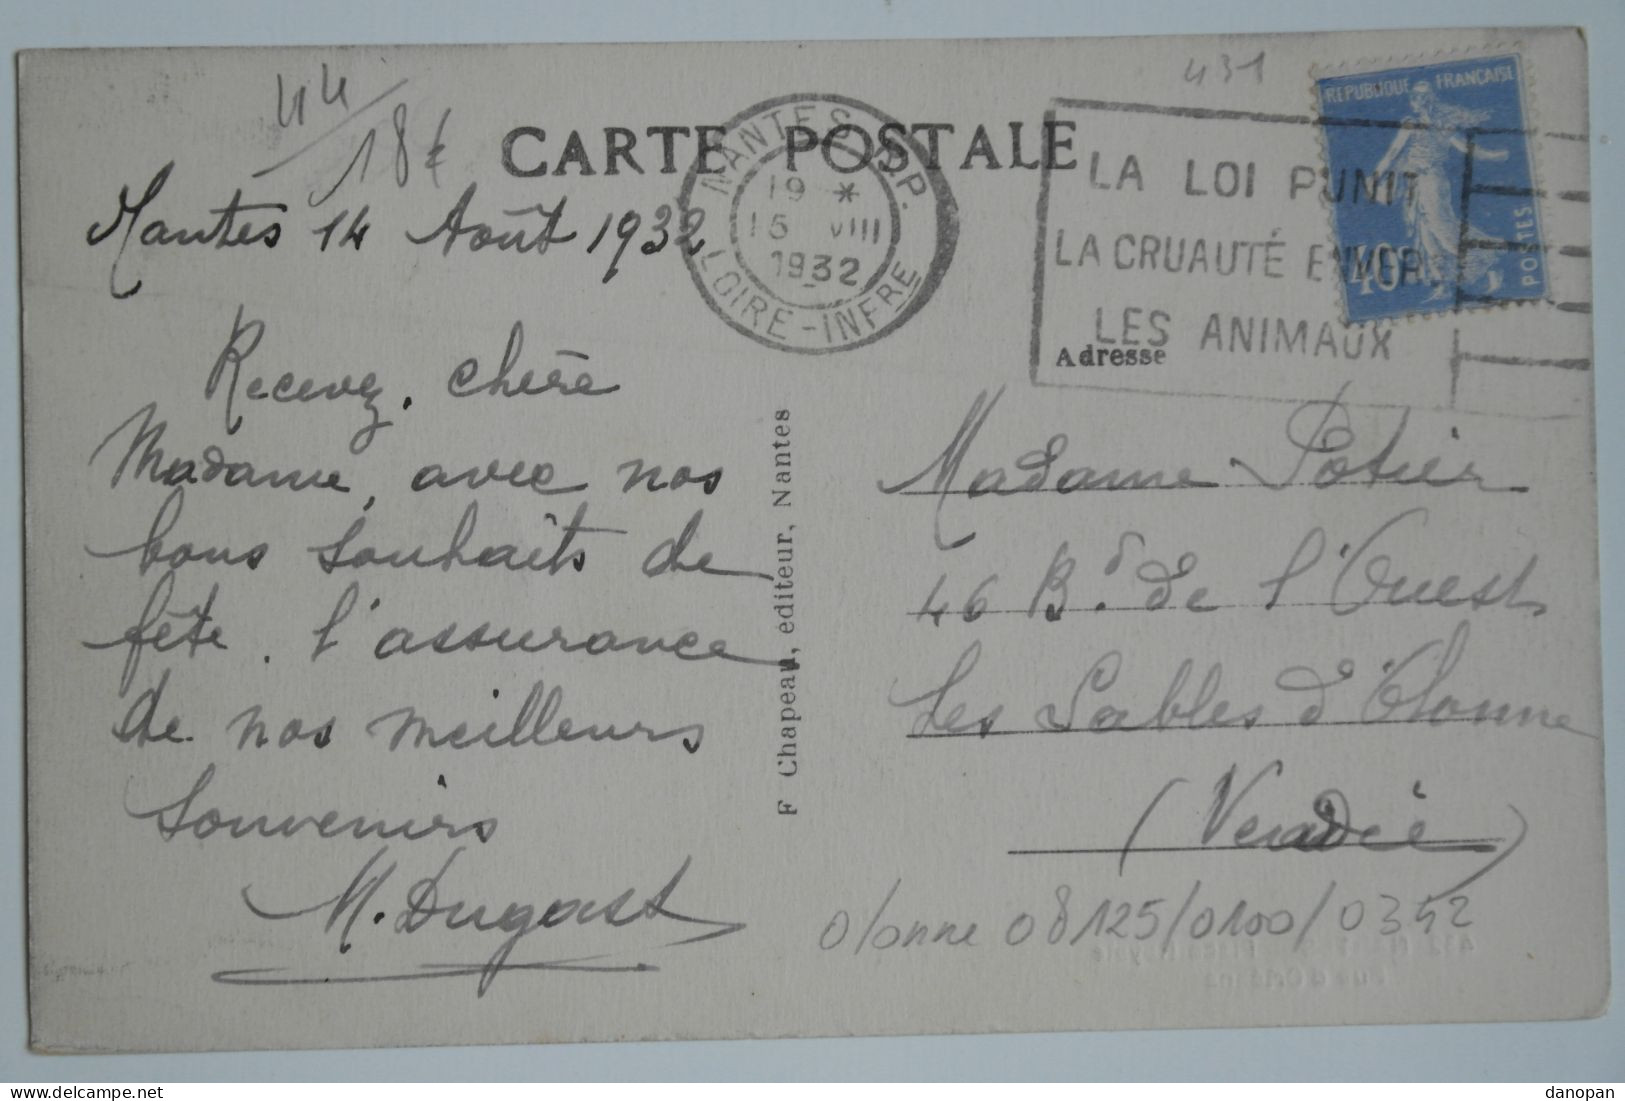 44
18€
431
CARTE POSTALE
NANTES
LOIRE-INFRE
19 *
VIII
1932
LA LOI PUNIT
LA CRUAUTÉ ENVER
LES ANIMAUX
REPUBLIQUE FRANÇAISE
40c
POSTES
Nantes 14 Août 1932
Recevez, chère
Madame, avec nos
bons souhaits de
fête. l'assurance
de nos meilleurs
souvenirs
M. Dugast
F Chapeau, editeur, Nantes
Adresse
Madame Potier
46 Bd. de l'Ouest
Les Sables d'Olonne
(Vendée)
Olonne 08125/0100/0342
delcampe.net
danopan